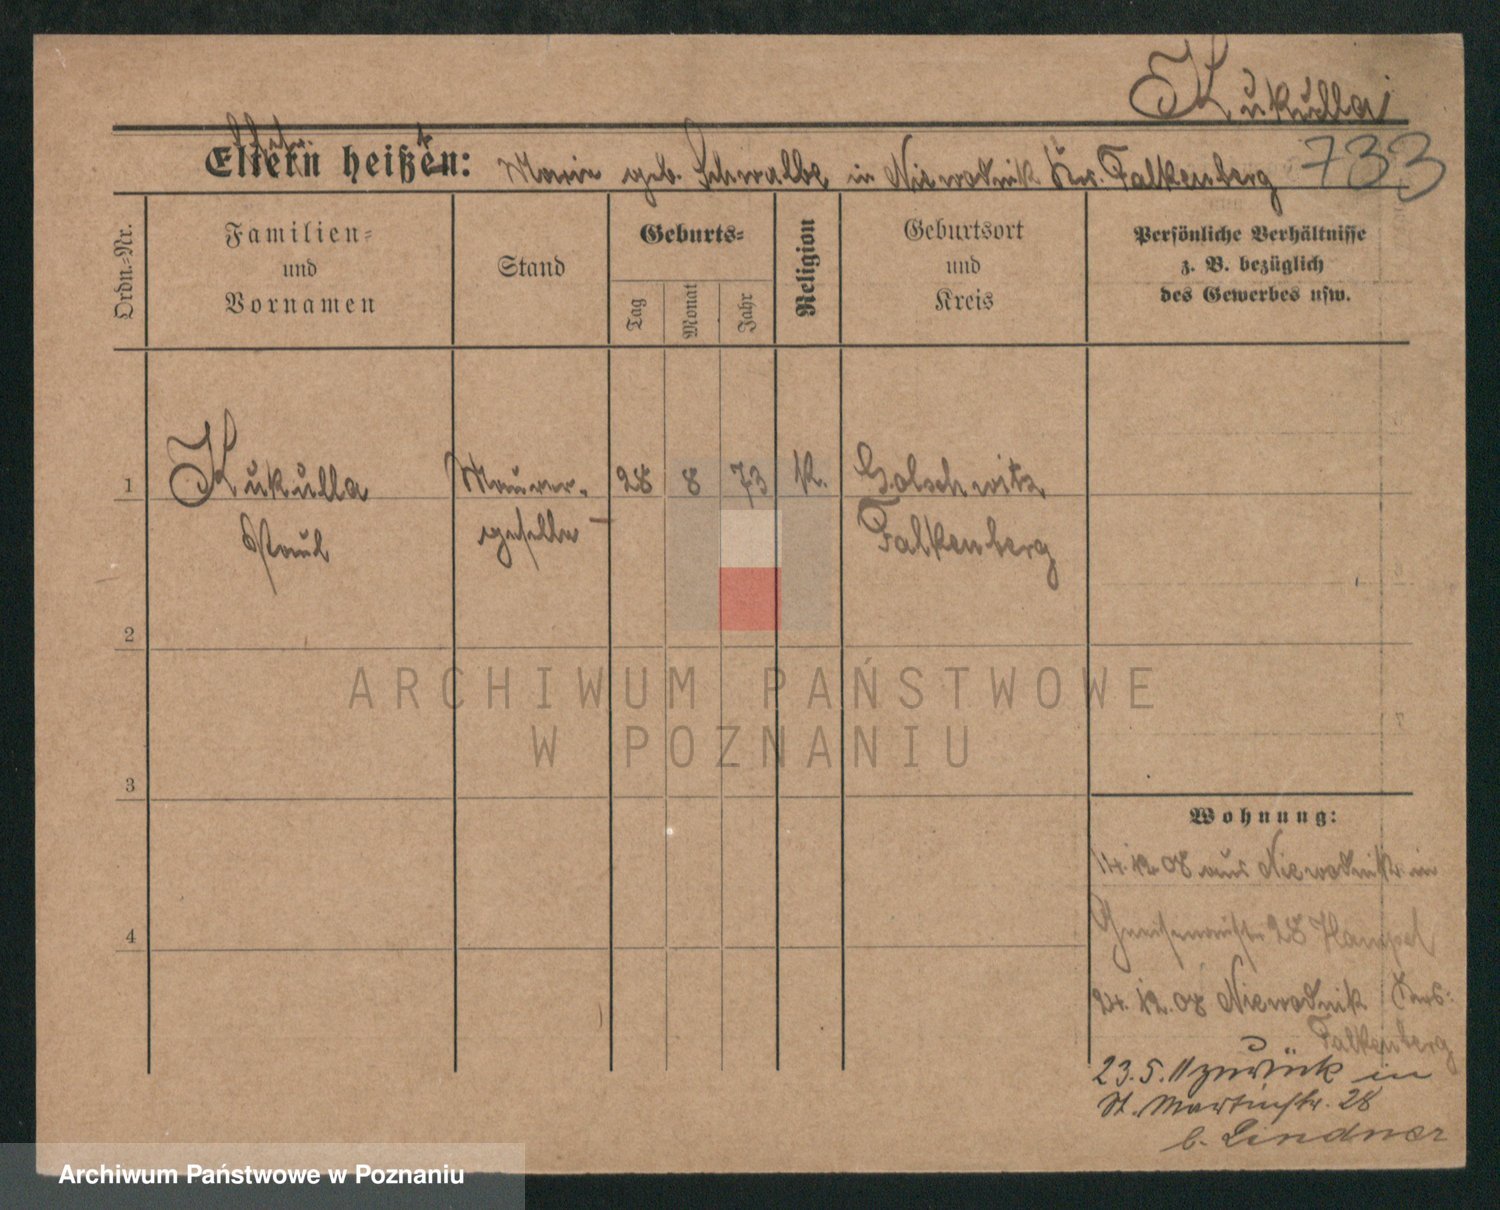 Kukulla
Eltern heißen: Marie geb. Schwalbe in Niewodnik Krs. Falkenberg 733
Ordn.-Nr.
Familien-
und
Vornamen
Stand
Geburts-
Tag
Monat
Jahr
Religion
Geburtsort
und
Kreis
Persönliche Verhältnisse
z. B. bezüglich
des Gewerbes usw.
1 Kukulla Maurer- 28 8 73 K. Golschwitz
Paul geselle Falkenberg
2
3
4
Wohnung:
14.12.08 aus Niewodnik in
Gneisenaustr. 28 Hampel
24.12.08 Niewodnik Krs:
Falkenberg
23.5.11 zurück in
St. Martinstr. 28
b. Lindner
ARCHIWUM PAŃSTWOWE
W POZNANIU
Archiwum Państwowe w Poznaniu